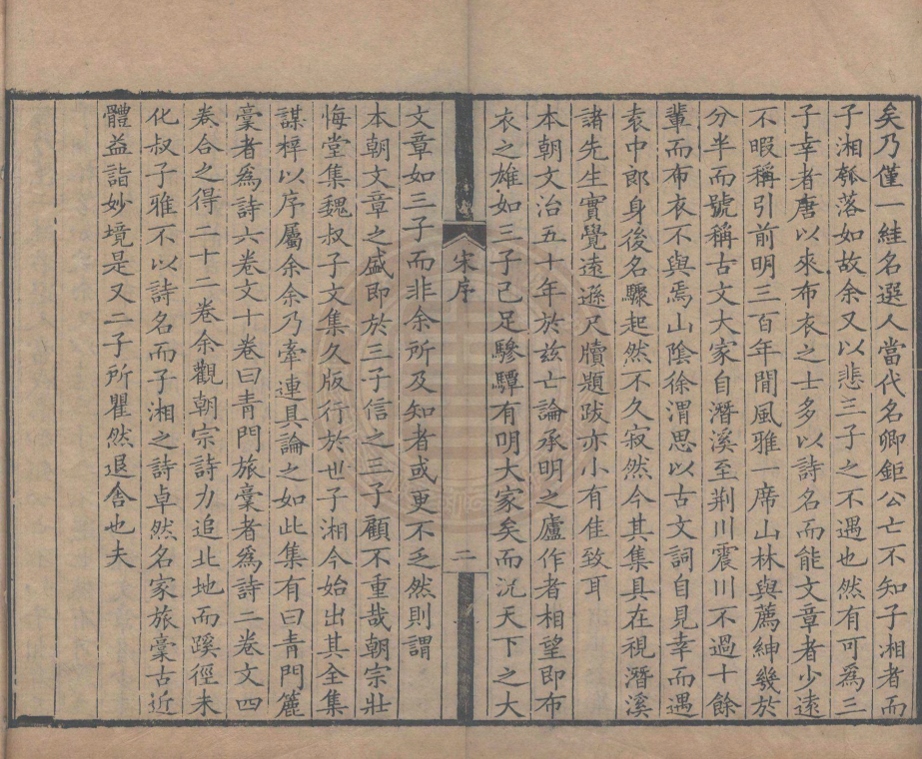 矣乃僅一絓名選人當代名卿鉅公亡不知子湘者而
子湘瓠落如故余又以悲三子之不遇也然有可為三
子幸者唐以來布衣之士多以詩名而能文章者少遠
不暇稱引前明三百年間風雅一席山林與薦紳幾於
分半而號稱古文大家自潛溪至荆川震川不過十餘
輩而布衣不與焉山陰徐渭思以古文詞自見幸而遇
袁中郎身後名驟起然不久寂然今其集具在視潛溪
諸先生實覺遠遜尺牘題跋亦小有佳致耳
本朝文治五十年於兹亡論承明之廬作者相望即布
衣之雄如三子已足驂驔有明大家矣而況天下之大
宋序
二
文章如三子而非余所及知者或更不乏然則謂
本朝文章之盛即於三子信之三子顧不重哉朝宗壯
悔堂集魏叔子文集久版行於世子湘今始出其全集
謀梓以序屬余余乃牽連具論之如此集有曰青門簏
稾者為詩六卷文十卷曰青門旅稾者為詩二卷文四
卷合之得二十二卷余觀朝宗詩力追北地而蹊徑未
化叔子雅不以詩名而子湘之詩卓然名家旅稾古近
體益詣妙境是又二子所瞿然退舍也夫